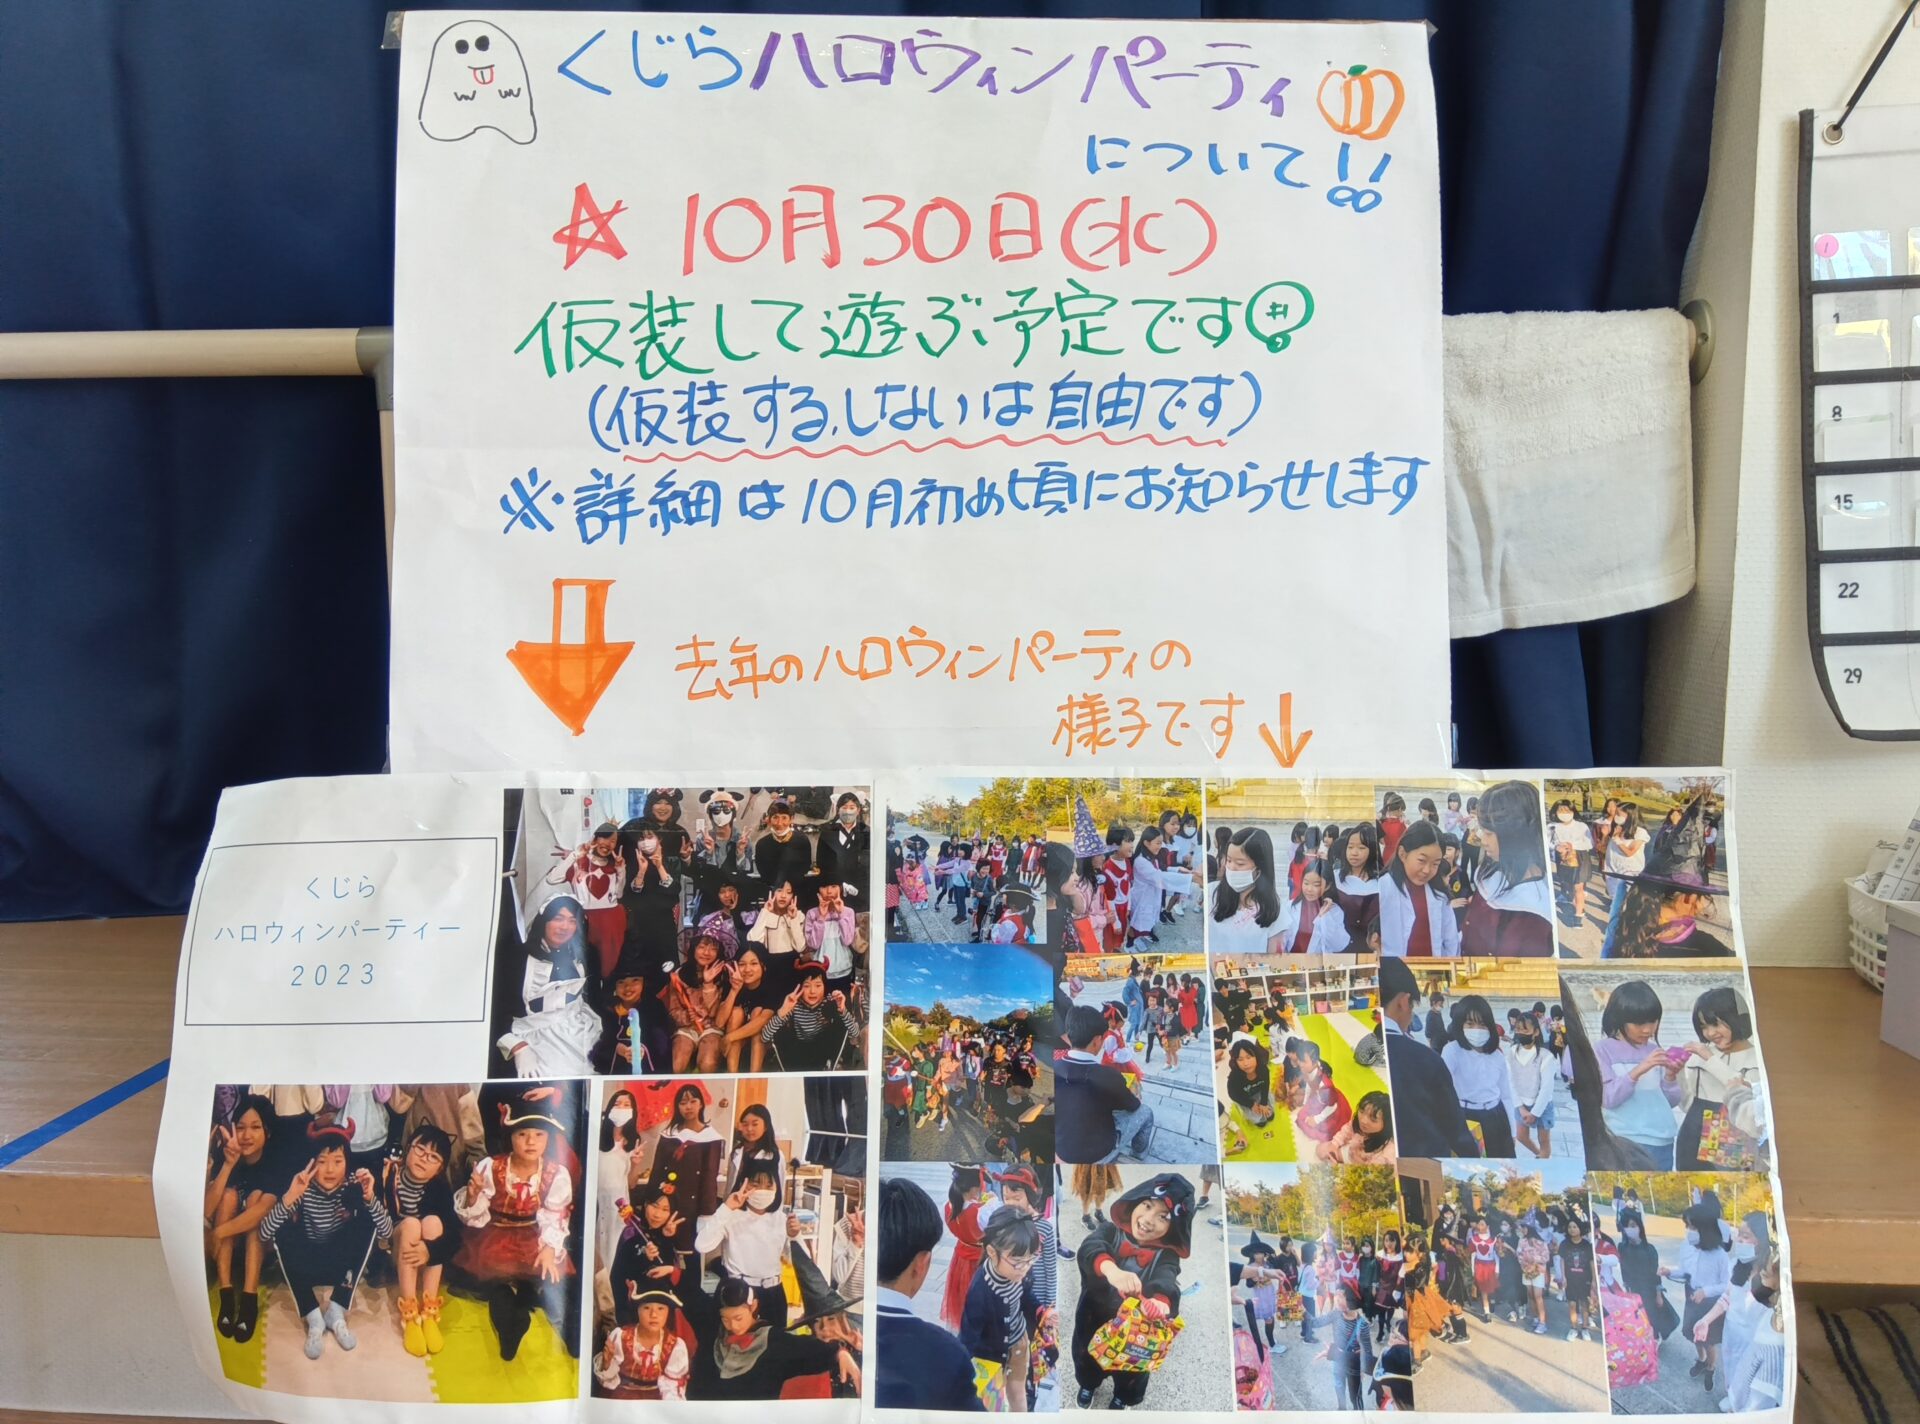 くじらハロウィンパーティ
について!!
☆ 10月30日(水)
仮装して遊ぶ予定です
(仮装する、しないは自由です)
※詳細は10月初め頃にお知らせします
去年のハロウィンパーティの
様子です↓
くじら
ハロウィンパーティー
2023
1
8
15
22
29